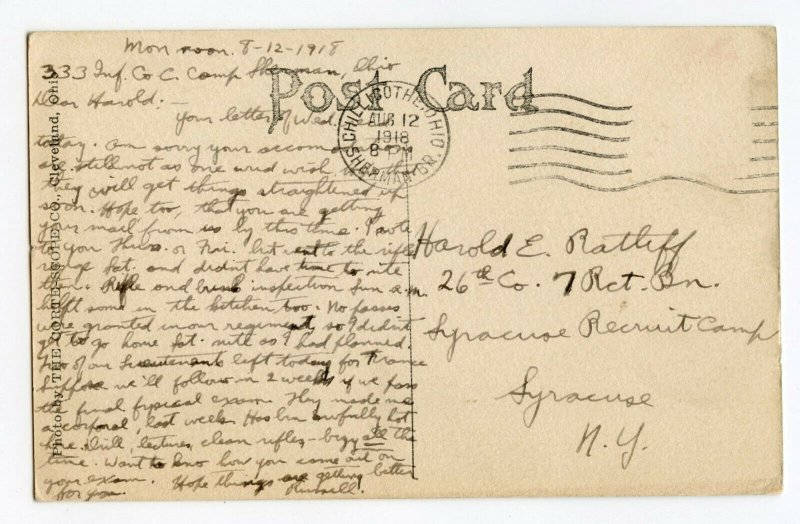 Mon noon. 8-12-1918
333 Inf. Co C. Camp Sherman, Ohio
Post Card
Dear Harold:-
Your letter of Wed.
today. Am sorry your accomo
are still not as one wud wish
they will get things straightened up
soon. Hope too, that you are getting
your mail from us by this time. I wrote
to you Thurs. or Fri. but went to the rifle
range Sat. and didnt have time to rite
then. Rifle and bunk inspection Sun a.m.
helpt some in the kitchen too. No passes
were granted in our regiment, so I didn't
get to go home Sat. nite as I had planned.
Two of our Lieutenants left today for France
Suppose we'll follow in 2 weeks if we pass
the final fysical exam. They made me
a corporal, last week. Has bin awfully hot
here. Drill, lectures, clean rifles - bizy all the
time. Want to kno how you came out on
your exam. Hope things are getting better
for you. Russell.
CHILLICOTHE, OHIO
AUG 12
1918
8 PM
SHERMAN BR.
Harold E. Ratliff
26th Co. 7 Rct. Bn.
Syracuse Recruit Camp
Syracuse
N.Y.
Photo by THE CORTE-SCOPE CO., Cleveland, Ohio